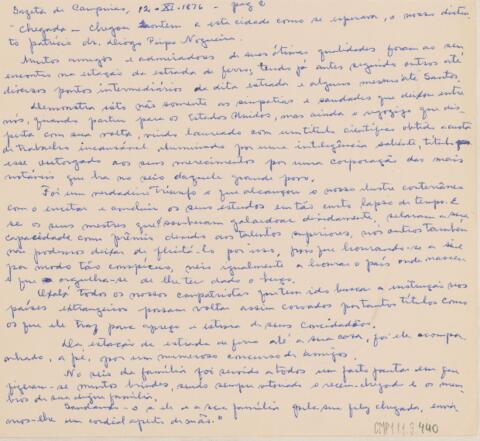 Gazeta de Campinas, 12-XI-1876 - pag 2
"Chegada - Chegou ontem a esta cidade como se esperava, o nosso distin-
to patrício dr. Diogo Pupo Nogueira.
Muitos amigos e admiradores de suas ótimas qualidades foram ao seu
encontro na estação da estrada de ferro, tendo já antes seguido outros até
diversos pontos intermediários da dita estrada e alguns mesmo até Santos.
Demonstra isto não somente as simpatias e saudades que deixou entre
nós, quando partiu para os Estados Unidos, mas ainda o regozijo que des-
perta com sua volta, vindo laureado com um título científico obtido a custa
de trabalho incansável, iluminado por uma inteligência saliente, título
esse outorgado aos seus merecimentos por uma corporação das mais
notáveis que ha no seio daquele grande povo.
Foi um verdadeiro triunfo o que alcançou o nosso ilustre conterrâneo
com o encetar e concluir os seus estudos em tão curto lapso de tempo. E
se os seus mestres que souberam galardoar devidamente, selaram a sua
capacidade com o prêmio devido aos talentos superiores, nós outros tambem
não podemos deixar de felicitá-lo por isso, pois que honrando-se a si
por modo tão conspícuo, veio igualmente a honrar o país onde nasceu
e que orgulha-se de lhe ter dado o berço.
Oxalá todos os nossos compatriotas que tem ido buscar a instrução nos
países estrangeiros possam voltar assim coroados por tantos títulos como
os que ele traz para apreço e estima de seus concidadãos.
Da estação da estrada de ferro até a sua casa, foi ele acompa-
nhado, a pé, por um numeroso concurso de amigos.
No seio da família foi servido a todos um farto jantar em que
fizeram-se muitos brindes, sendo sempre vitoriado o recem-chegado e os mem-
bros de sua digna família.
Saudando-o a ele e a sua família pela sua feliz chegada, envia-
mos-lhe um cordial aperto de mão."
CMP1.1.9.440